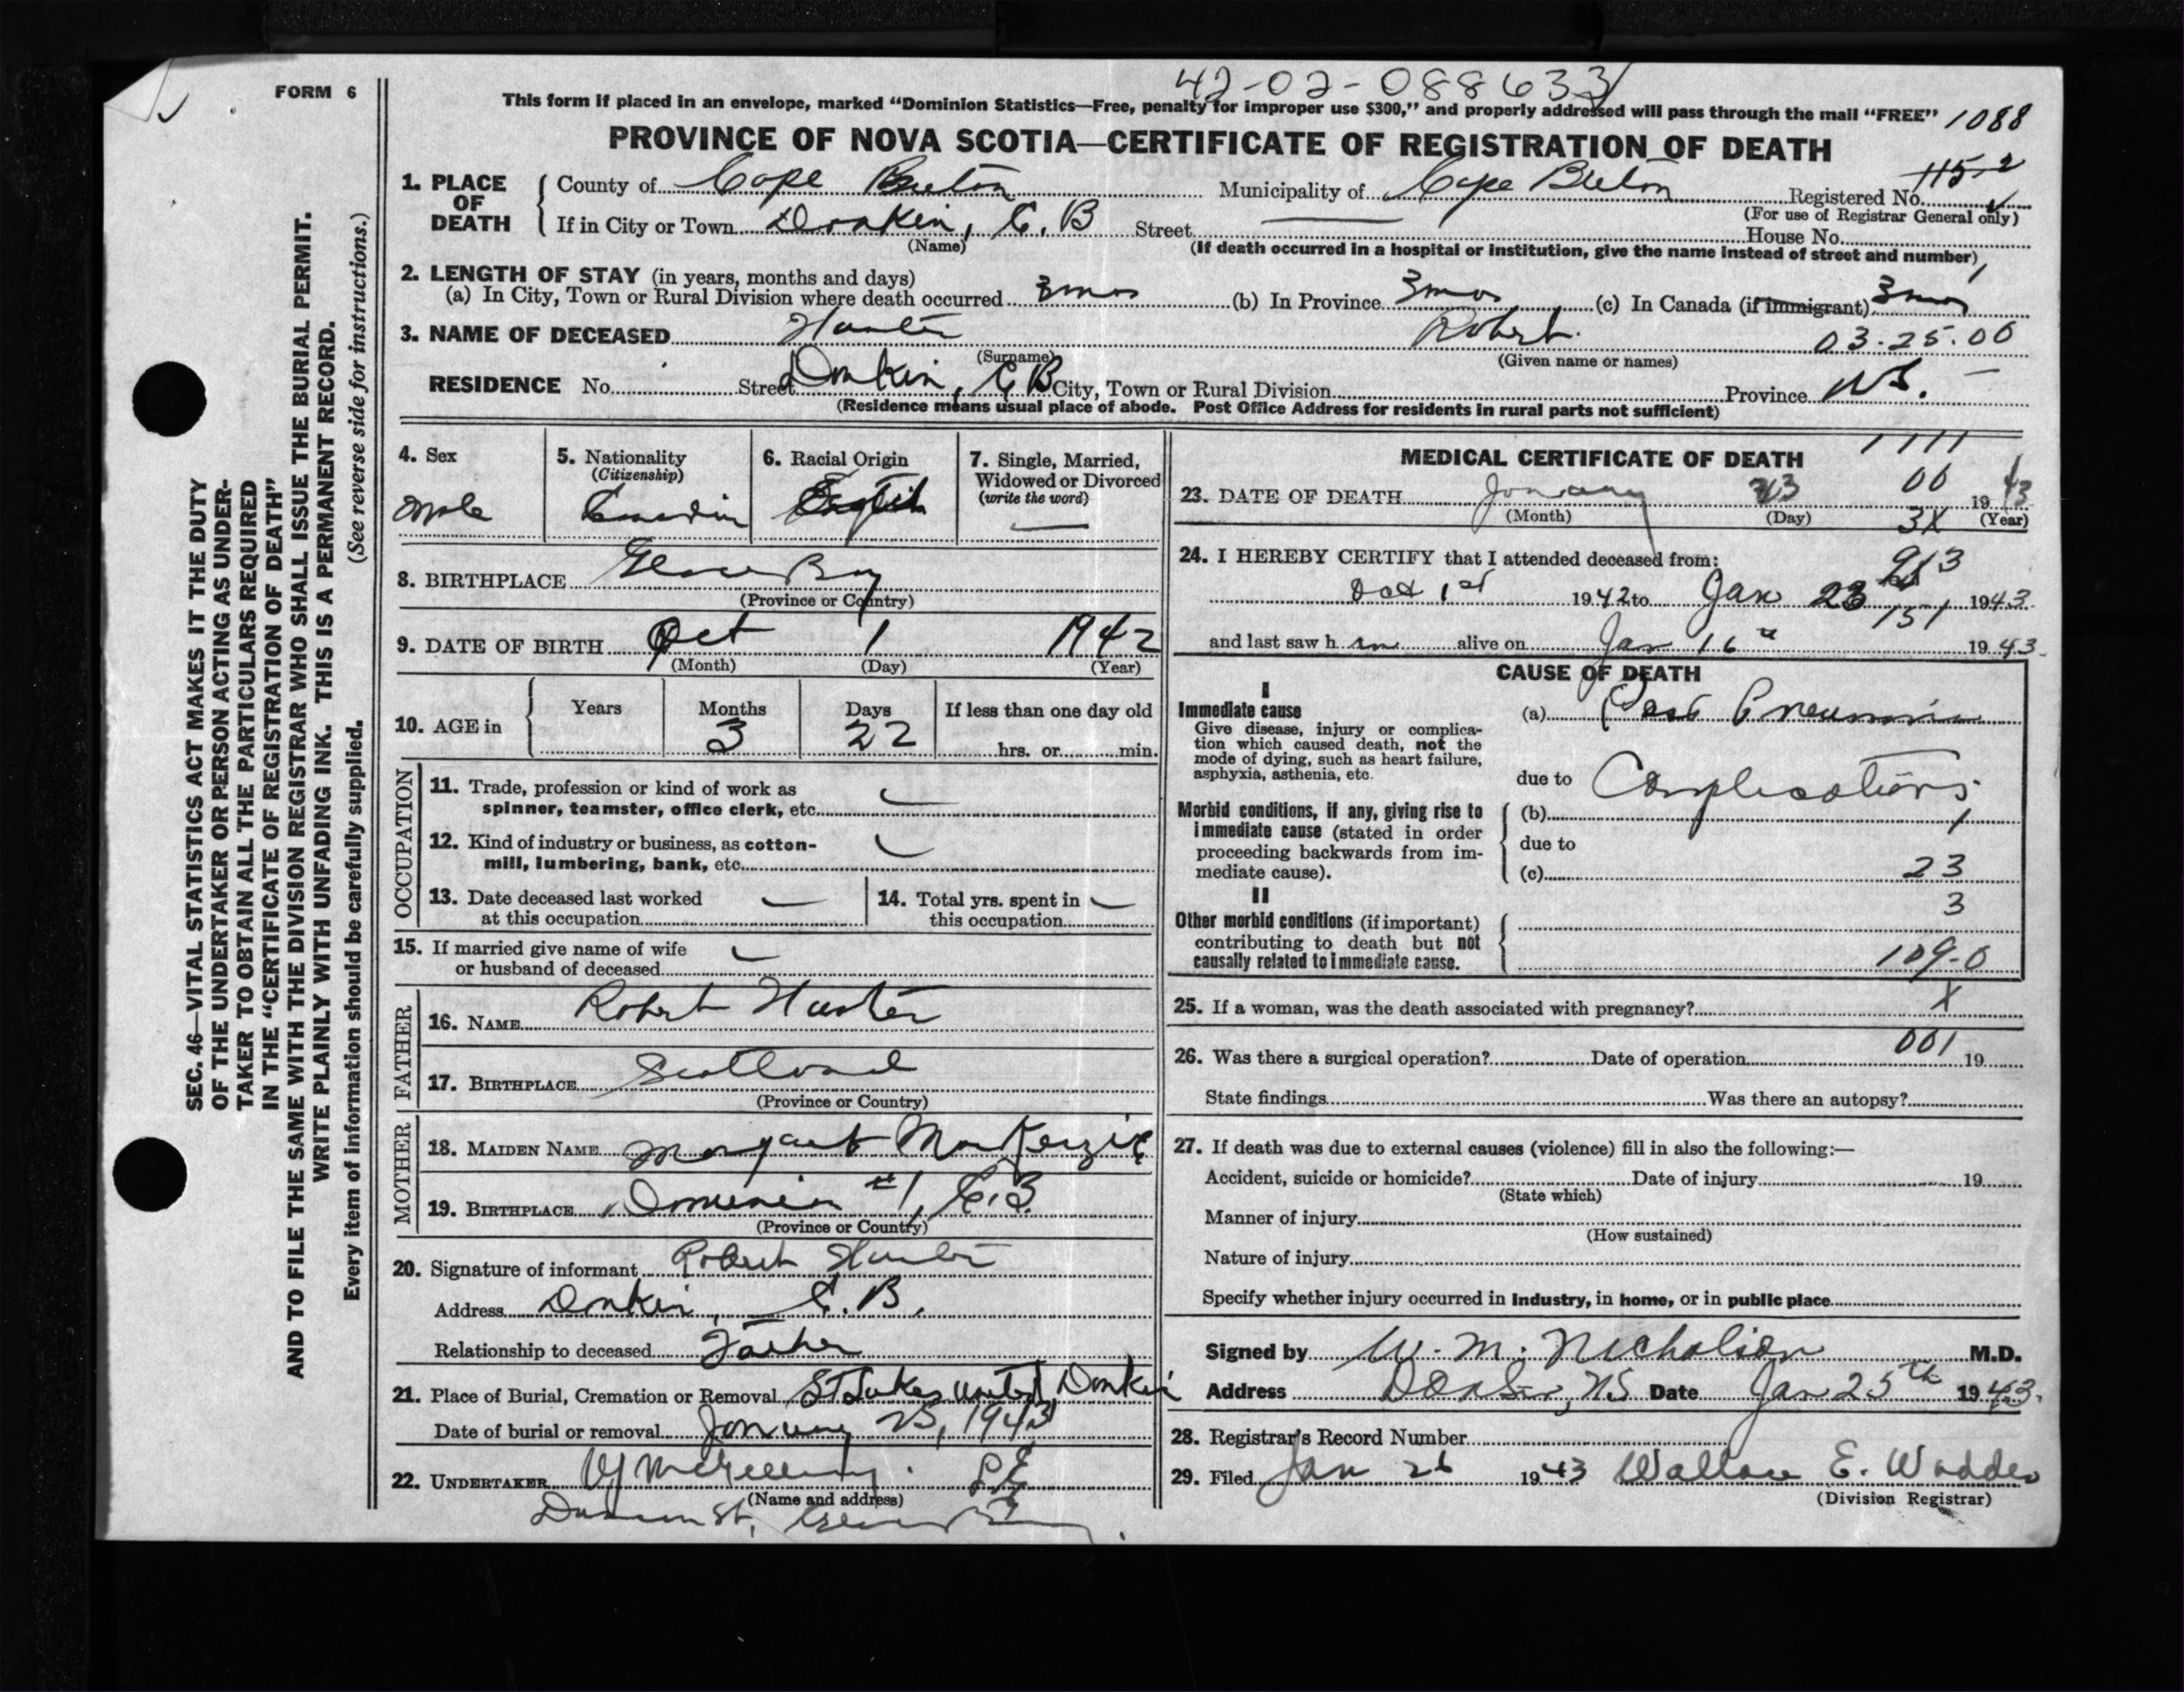 42-02-088633
FORM 6
This form if placed in an envelope, marked "Dominion Statistics—Free, penalty for improper use $300," and properly addressed will pass through the mail "FREE" 1088
PROVINCE OF NOVA SCOTIA—CERTIFICATE OF REGISTRATION OF DEATH
1. PLACE OF DEATH County of Cape Breton Municipality of Cape Breton Registered No. 115-2
(For use of Registrar General only)
If in City or Town Donkin, C. B Street House No.
(Name) (If death occurred in a hospital or institution, give the name instead of street and number)
2. LENGTH OF STAY (in years, months and days)
(a) In City, Town or Rural Division where death occurred 3mos (b) In Province 3mos (c) In Canada (if immigrant) 3mos
3. NAME OF DECEASED Hunter Robert 03.25.00
(Surname) (Given name or names)
RESIDENCE No. Street Donkin, C B City, Town or Rural Division Province N.S.
(Residence means usual place of abode. Post Office Address for residents in rural parts not sufficient)
4. Sex
Male
5. Nationality
(Citizenship)
Canadian
6. Racial Origin
English
7. Single, Married,
Widowed or Divorced
(write the word)
8. BIRTHPLACE Glace Bay
(Province or Country)
9. DATE OF BIRTH Oct 1 1942
(Month) (Day) (Year)
10. AGE in Years Months Days If less than one day old
3 22 hrs. or min.
OCCUPATION
11. Trade, profession or kind of work as
spinner, teamster, office clerk, etc.
12. Kind of industry or business, as cotton-
mill, lumbering, bank, etc.
13. Date deceased last worked
at this occupation
14. Total yrs. spent in
this occupation
15. If married give name of wife
or husband of deceased
FATHER
16. NAME Robert Hunter
17. BIRTHPLACE Scotland
(Province or Country)
MOTHER
18. MAIDEN NAME Margaret MacKenzie
19. BIRTHPLACE Dominion #1, C.B.
(Province or Country)
20. Signature of informant Robert Hunter
Address Donkin, C. B.
Relationship to deceased Father
21. Place of Burial, Cremation or Removal St Lukes United Donkin
Date of burial or removal January 25, 1943
22. UNDERTAKER
(Name and address)
St., Glace Bay
MEDICAL CERTIFICATE OF DEATH
1111
23. DATE OF DEATH January 23 00 1943
(Month) (Day) 3X (Year)
24. I HEREBY CERTIFY that I attended deceased from:
Oct 1st 1942 to Jan 23 1943
151
and last saw h im alive on Jan 16th 1943.
CAUSE OF DEATH
I
Immediate cause
Give disease, injury or complica-
tion which caused death, not the
mode of dying, such as heart failure,
asphyxia, asthenia, etc.
(a) Post Pneumonia
due to Complications
Morbid conditions, if any, giving rise to
immediate cause (stated in order
proceeding backwards from im-
mediate cause).
(b) 1
due to
(c) 23
II
3
Other morbid conditions (if important)
contributing to death but not
causally related to immediate cause.
109-0
25. If a woman, was the death associated with pregnancy? X
26. Was there a surgical operation? Date of operation 001 19
State findings Was there an autopsy?
27. If death was due to external causes (violence) fill in also the following:—
Accident, suicide or homicide? Date of injury 19
(State which)
Manner of injury
(How sustained)
Nature of injury
Specify whether injury occurred in Industry, in home, or in public place
Signed by W. M. Nicholson M.D.
Address NS Date Jan 25th 1943.
28. Registrar's Record Number
29. Filed Jan 26 1943 Wallace E. Wadden
(Division Registrar)
SEC. 46—VITAL STATISTICS ACT MAKES IT THE DUTY
OF THE UNDERTAKER OR PERSON ACTING AS UNDER-
TAKER TO OBTAIN ALL THE PARTICULARS REQUIRED
IN THE "CERTIFICATE OF REGISTRATION OF DEATH"
AND TO FILE THE SAME WITH THE DIVISION REGISTRAR WHO SHALL ISSUE THE BURIAL PERMIT.
WRITE PLAINLY WITH UNFADING INK. THIS IS A PERMANENT RECORD.
Every item of information should be carefully supplied. (See reverse side for instructions.)